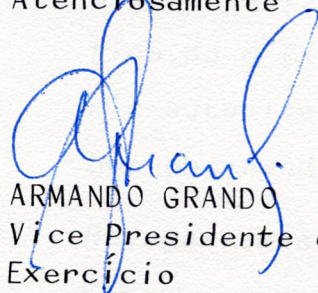 Atenciosamente
ARMANDO GRANDO
Vice Presidente
Exercício